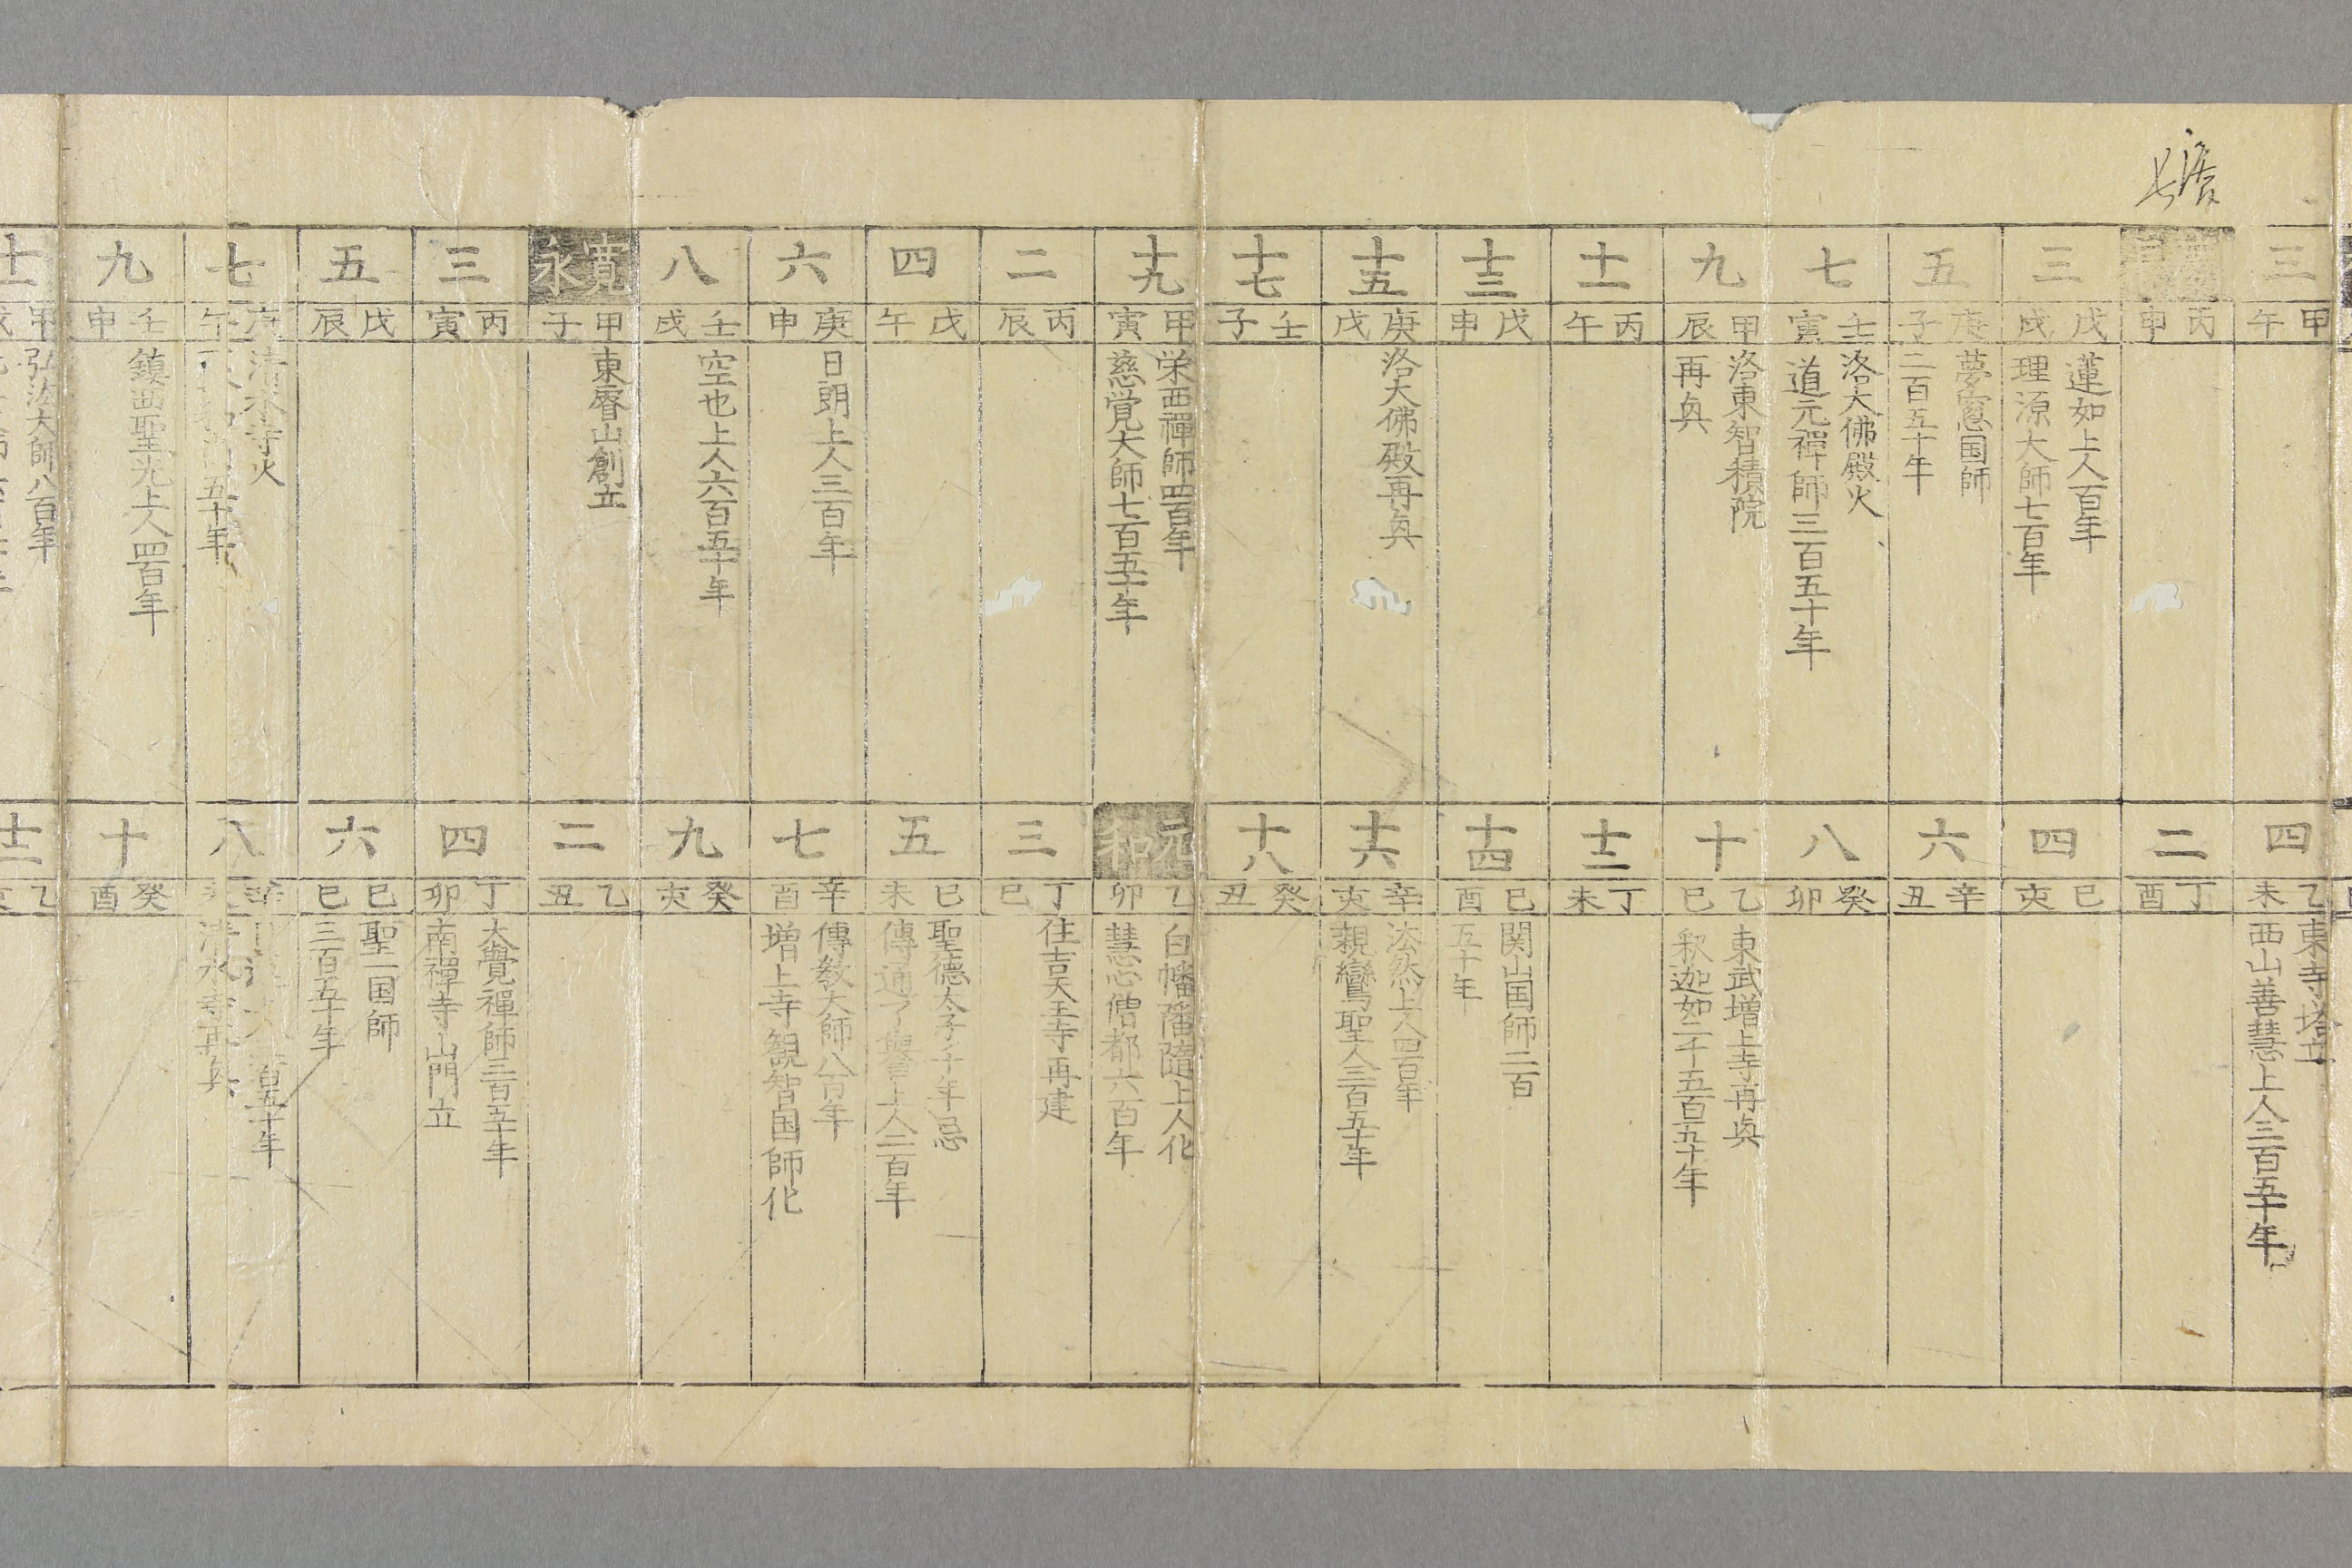 三
甲午
四
乙未
東寺塔立
西山善慧上人三百五十年
丙申
二
丁酉
三
戊戌
蓮如上人百年
理源大師七百年
四
巳亥
五
庚子
夢窓国師
二百五十年
六
辛丑
七
壬寅
洛大佛殿火
道元禪師三百五十年
八
癸卯
九
甲辰
洛東智積院
再興
十
乙巳
東武増上寺再興
釈迦如二千五百五十年
十一
丙午
十二
丁未
十三
戊申
十四
巳酉
関山国師二百
五十年
十五
庚戌
洛大佛殿再興
十六
辛亥
法然上人四百年
親鸞聖人三百五十年
十七
壬子
十八
癸丑
十九
甲寅
栄西禪師四百年
慈覚大師七百五十年
元和
乙卯
白幡隨上人化
慧心僧都六百年
二
丙辰
三
丁巳
住吉天王寺再建
四
戊午
五
巳未
聖德太子千年忌
傳通了譽上人二百年
六
庚申
日朗上人三百年
七
辛酉
傳教大師八百年
増上寺観智国師化
八
壬戌
空也上人六百五十年
九
癸亥
寛永
甲子
東叡山創立
二
乙丑
三
丙寅
四
丁卯
大覺禪師三百五十年
南禪寺山門立
五
戊辰
六
巳巳
聖一国師
三百五十年
七
庚午
清水寺火
五十年
八
辛未
百五十年
清水寺再興
九
壬申
鎮西聖光上人四百年
十
癸酉
十一
甲戌
弘法大師八百年
十二
乙亥